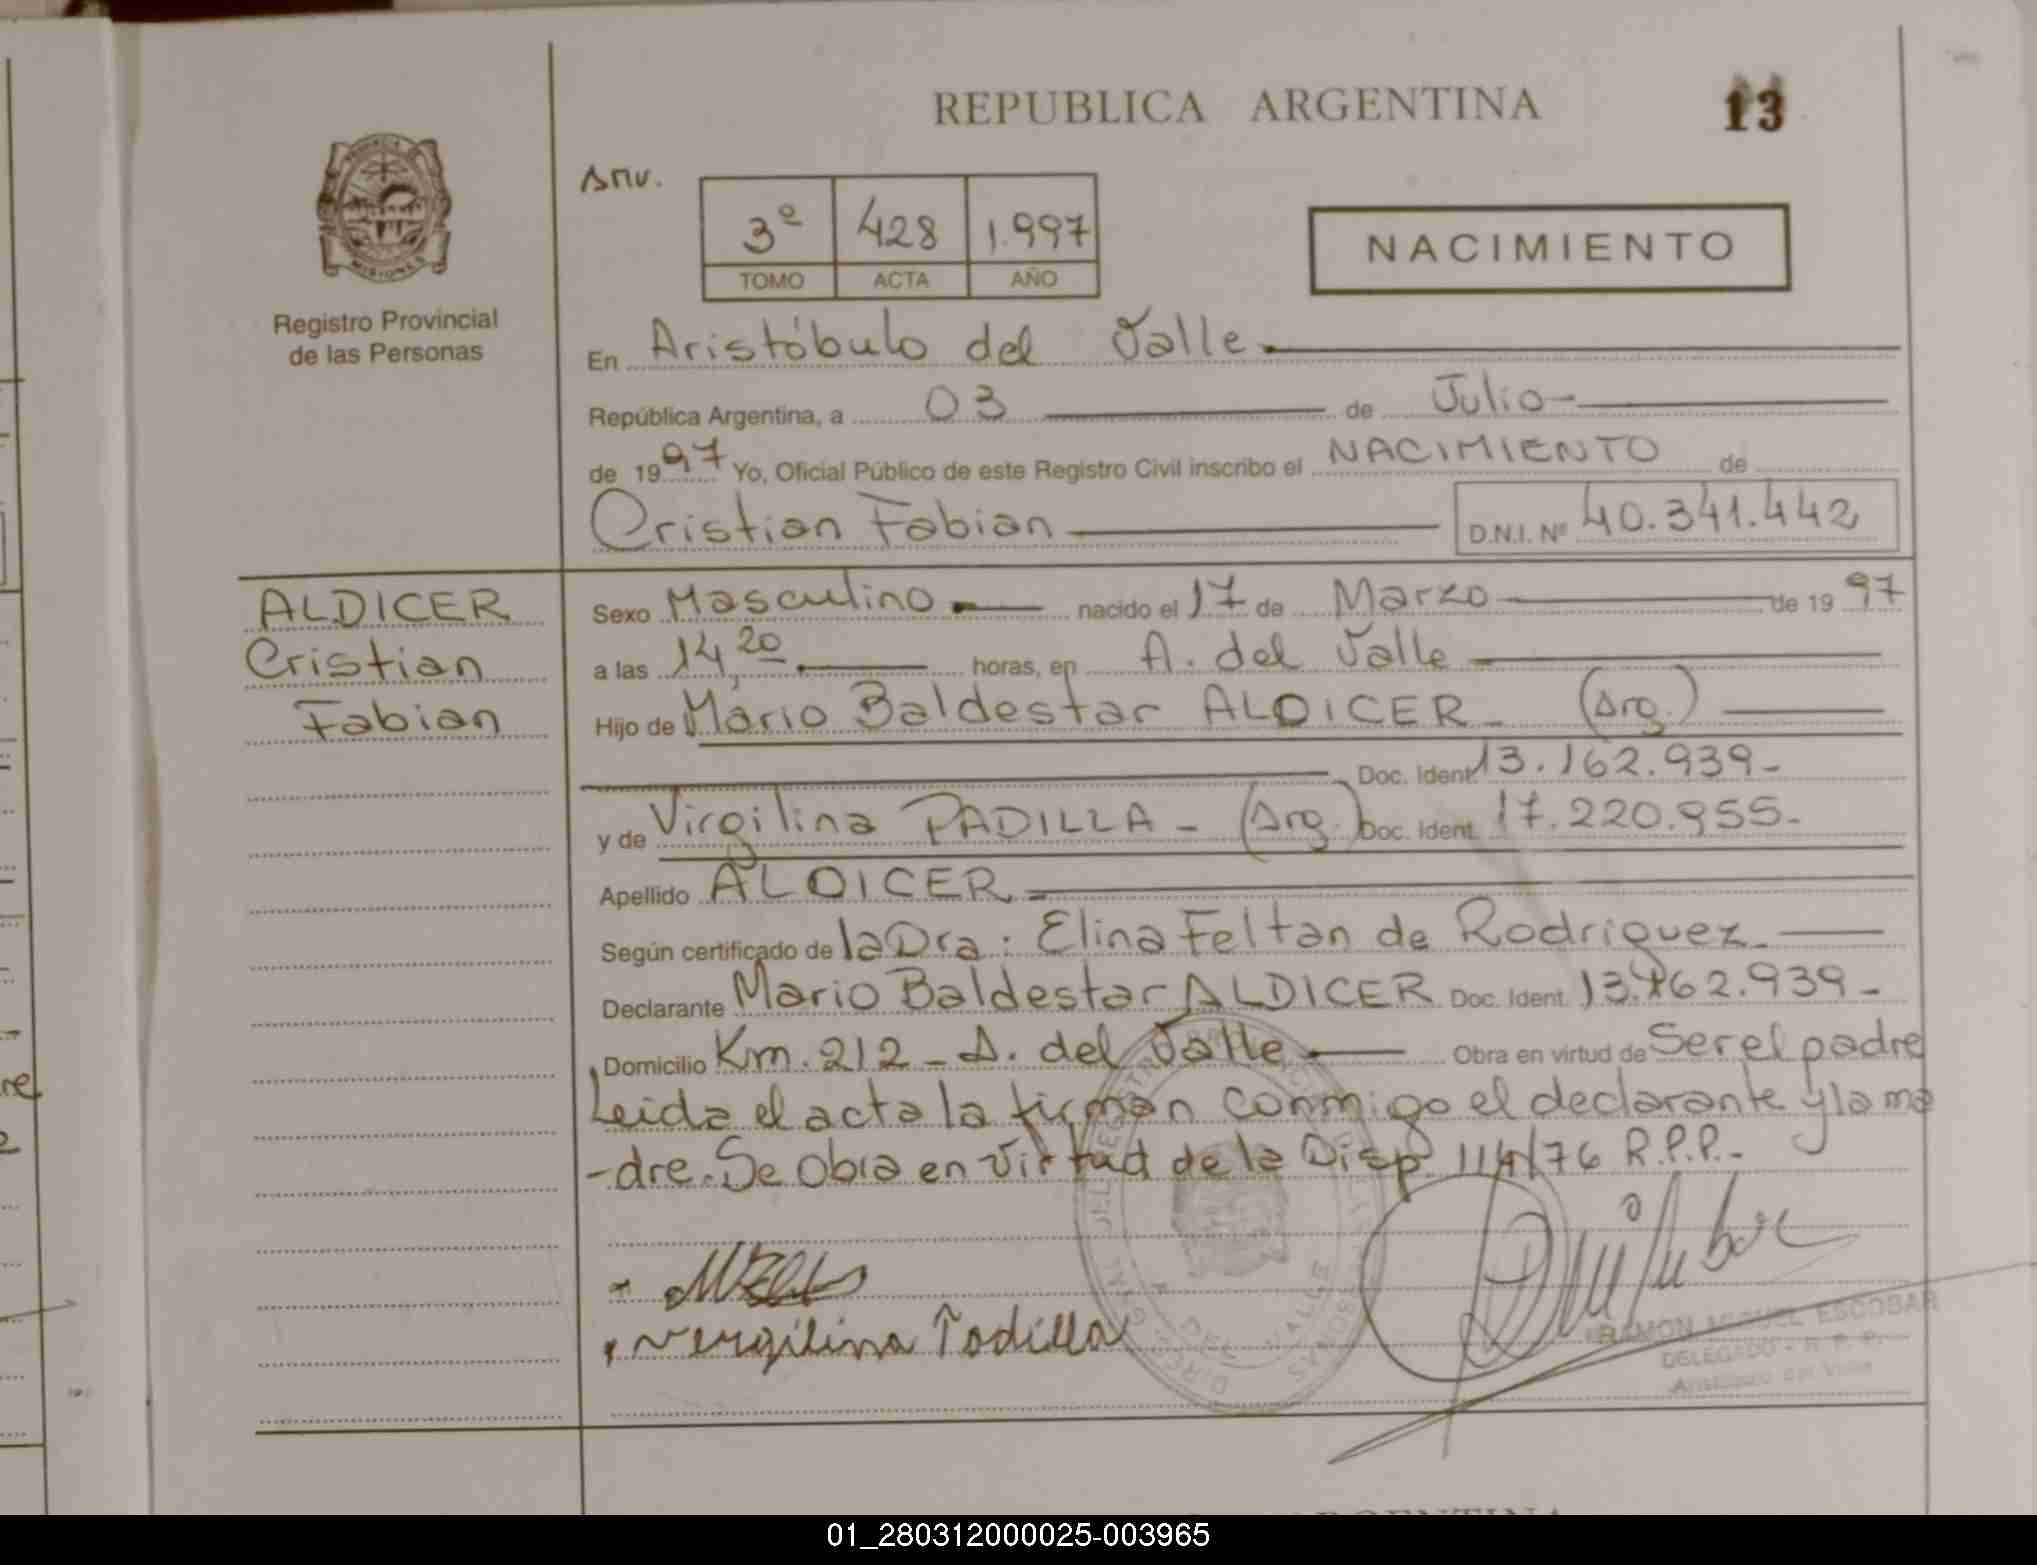 REPUBLICA ARGENTINA
13
PROVINCIA
MISIONES
Registro Provincial
de las Personas
3º 428 1.997
TOMO ACTA AÑO
NACIMIENTO
En Aristóbulo del Valle
República Argentina, a 03 de Julio
de 1997 Yo, Oficial Público de este Registro Civil inscribo el NACIMIENTO de
Cristian Fabian D.N.I. Nº 40.341.442
ALDICER
Cristian
Fabian
Sexo Masculino nacido el 17 de Marzo de 1997
a las 14,20 horas, en A. del Valle
Hijo de Mario Baldestar ALDICER - (Arg.)
Doc. Ident. 13.162.939-
y de Virgilina PADILLA - (Arg.) Doc. Ident. 17.220.955-
Apellido ALDICER
Según certificado de la Dra: Elina Feltan de Rodriguez
Declarante Mario Baldestar ALDICER Doc. Ident. 13.162.939-
Domicilio Km. 212 - A. del Valle Obra en virtud de Ser el padre
Leida el acta la firman conmigo el declarante y la ma
-dre. Se Obra en virtud de la Disp. /76 R.P.P.-
Vergilina Padilla
RAMON MIGUEL ESCOBAR
DELEGADO - R. P. P.
Aristóbulo del Valle
01_280312000025-003965